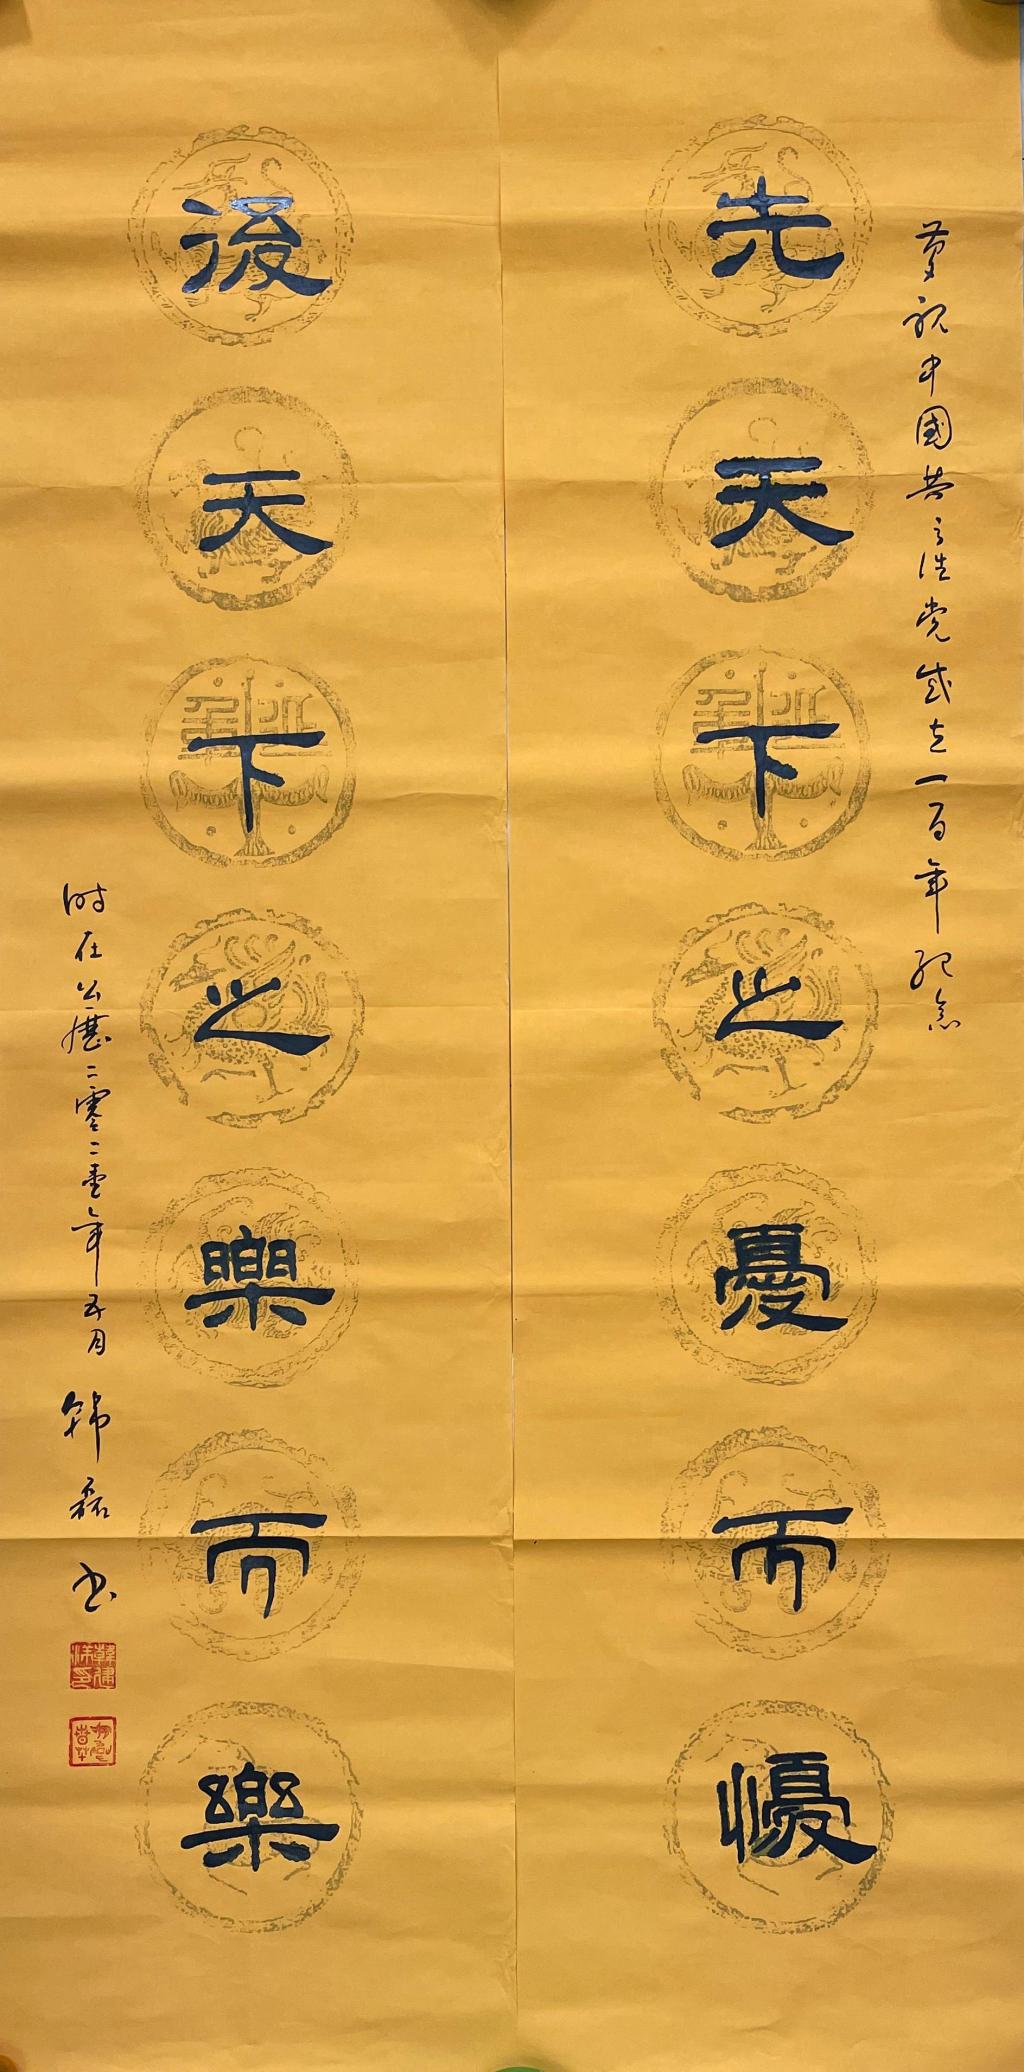 慶祝中國共產党成立一百年紀念
先天下之憂而懮
後天下之樂而樂
时在公歷二零二壹年五月 韩磊书